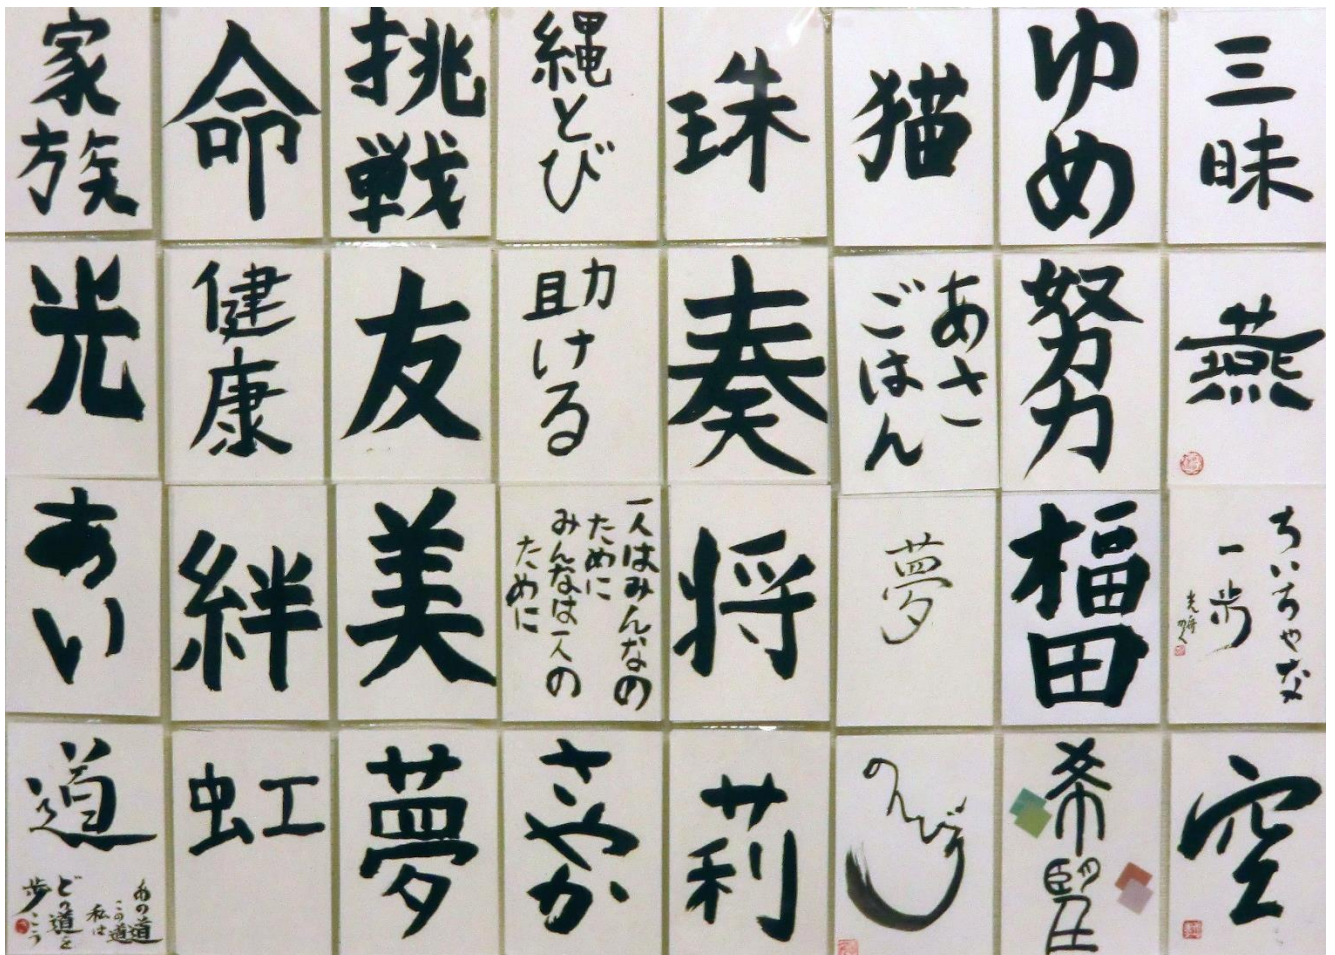 家族
命
挑戦
縄とび
珠
猫
ゆめ
三昧
光
健康
友
助ける
奏
あさ
ごはん
努力
燕
あい
絆
美
一人はみんなの
ために
みんなは一人の
ために
将
夢
福田
ちいちゃな
一歩
道
あの道
この道
私は
どの道を
歩こう
虹
夢
さやか
莉
のんびり
希望
空